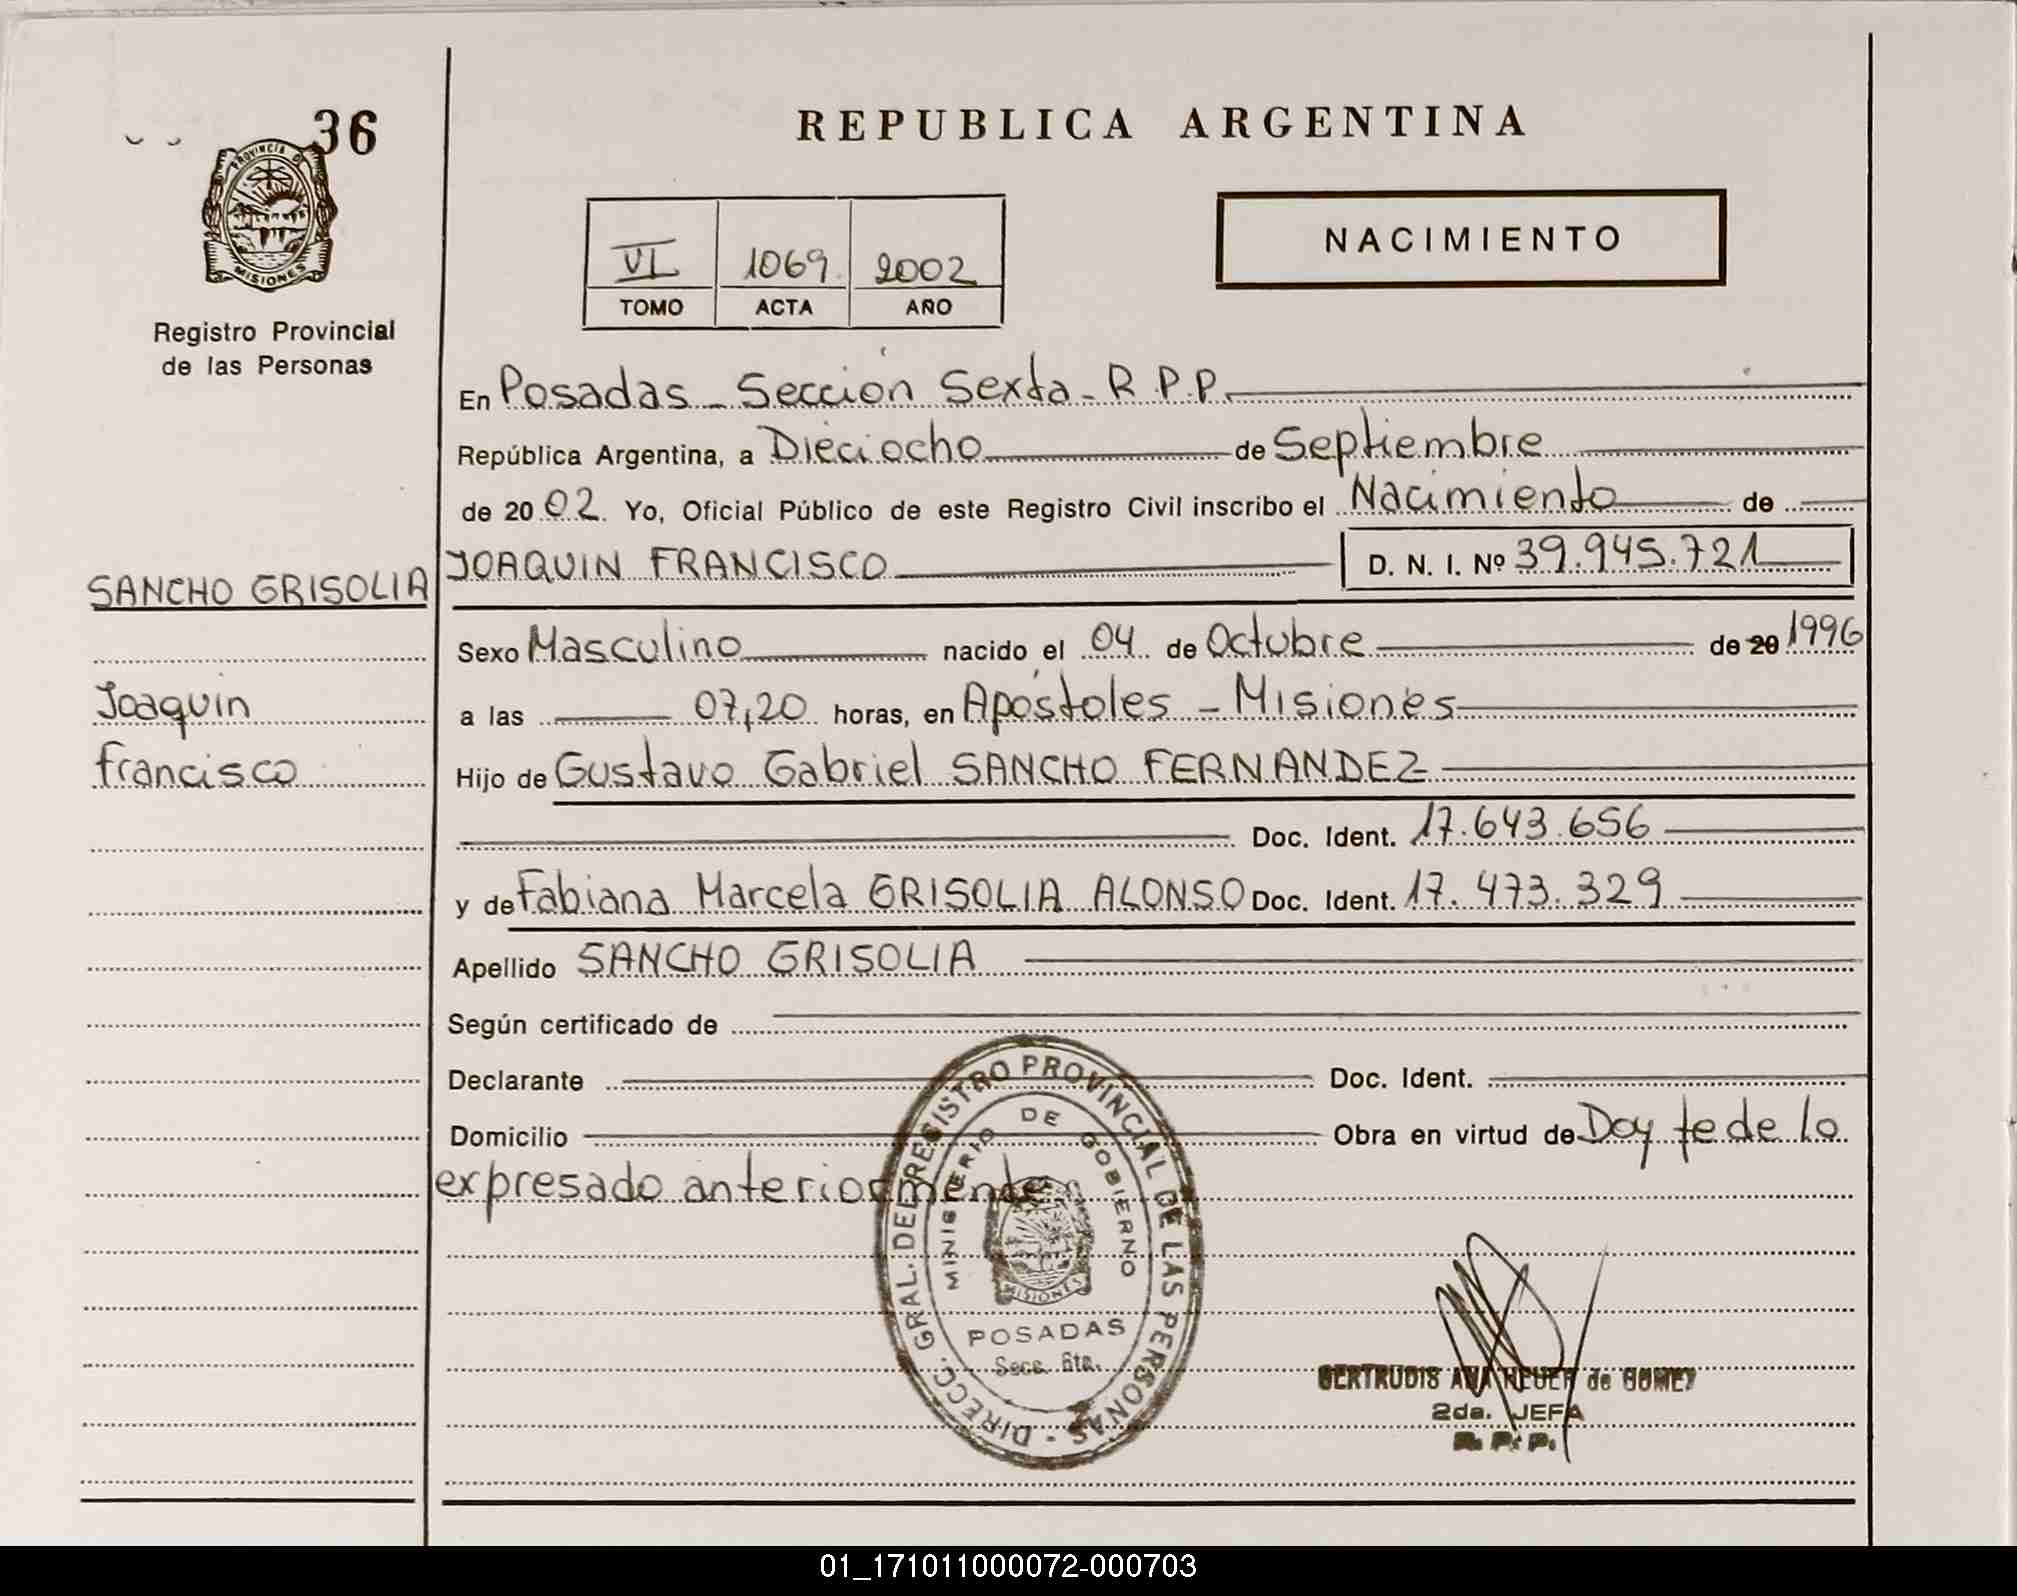 36
PROVINCIA DE
MISIONES
Registro Provincial
de las Personas
REPUBLICA ARGENTINA
VI 1069 2002
TOMO ACTA AÑO
NACIMIENTO
En Posadas - Sección Sexta - R.P.P.
República Argentina, a Dieciocho de Septiembre
de 20 02. Yo, Oficial Público de este Registro Civil inscribo el Nacimiento de
SANCHO GRISOLIA
JOAQUIN FRANCISCO D. N. I. Nº 39.945.721
Sexo Masculino nacido el 04 de Octubre de 20 1996
Joaquin
a las 07,20 horas, en Apóstoles - Misiones
Francisco
Hijo de Gustavo Gabriel SANCHO FERNANDEZ
Doc. Ident. 17.643.656
y de Fabiana Marcela GRISOLIA ALONSO Doc. Ident. 17.473.329
Apellido SANCHO GRISOLIA
Según certificado de
Declarante Doc. Ident.
Domicilio Obra en virtud de Doy fe de lo
expresado anteriormente.
DIRECC. GRAL. DEL REGISTRO PROVINCIAL DE LAS PERSONAS -
MINISTERIO DE GOBIERNO
MISIONES
POSADAS
Secc. 6ta.
GERTRUDIS ANA de GOMEZ
2da. JEFA
R. P. P.
01_171011000072-000703